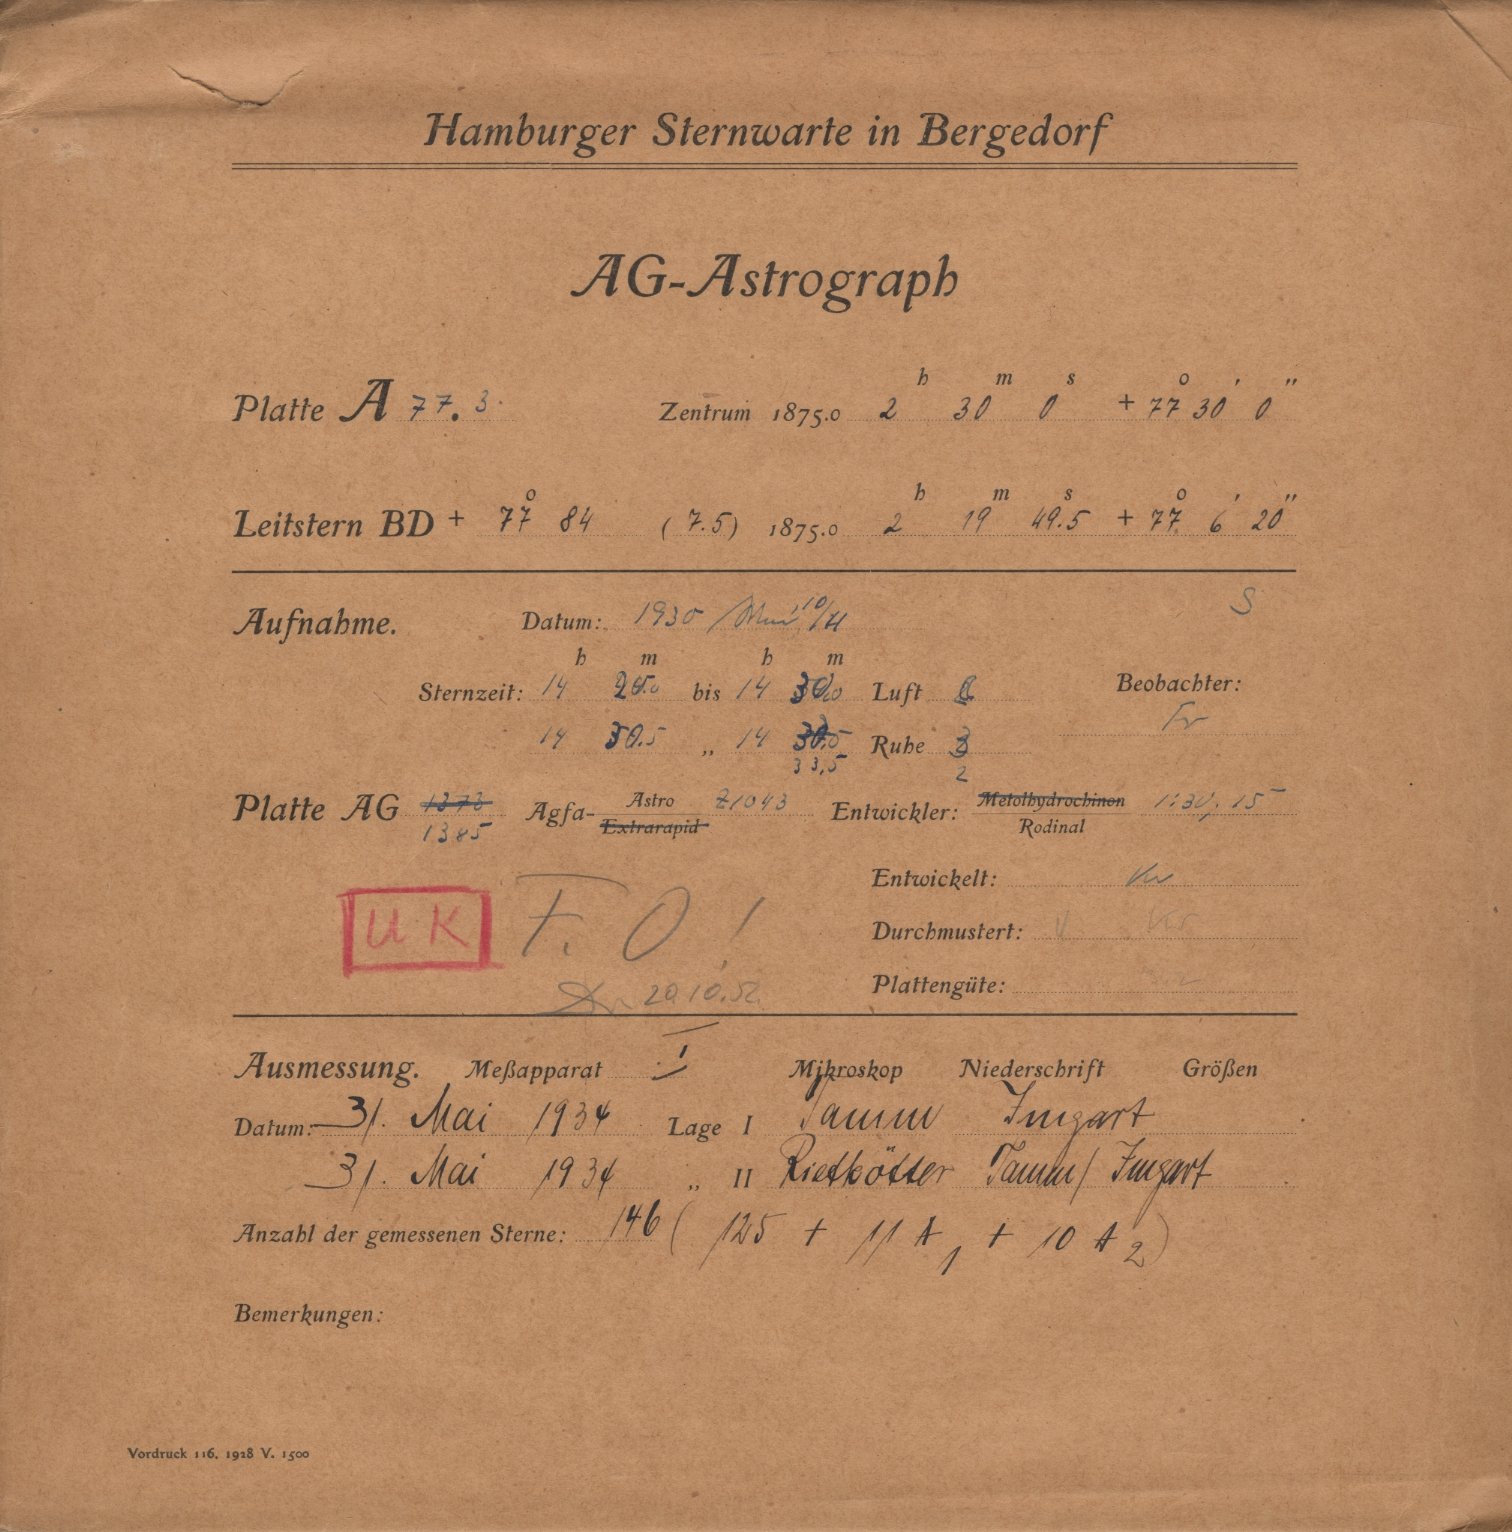 Hamburger Sternwarte in Bergedorf
AG-Astrograph
h m s o ' "
Platte A 77.3. Zentrum 1875.0 2 30 0 + 77 30 0
o h m s o ' "
Leitstern BD + 77 84 (7.5) 1875.0 2 19 49.5 + 77 6 20
S
Aufnahme. Datum: 1930 10/11
h m h m
Sternzeit: 14 bis 14 Luft Beobachter:
14 30.5 „ 14 Ruhe
33,5 2
Platte AG 1373 Agfa- Astro Z1043 Entwickler: Metolhydrochinon 1:30; 15
1385 Extrarapid Rodinal
Entwickelt: Kr
UK F. O! Durchmustert: Kr
20.10.52. Plattengüte:
Ausmessung. Meßapparat I Mikroskop Niederschrift Größen
Datum: 31. Mai 1934 Lage I Tamm Imgart
31. Mai 1934 „ II Rietkötter Tamm/Imgart
Anzahl der gemessenen Sterne: 146 (125 + 11 A1 + 10 A2)
Bemerkungen:
Vordruck 116. 1928 V. 1500